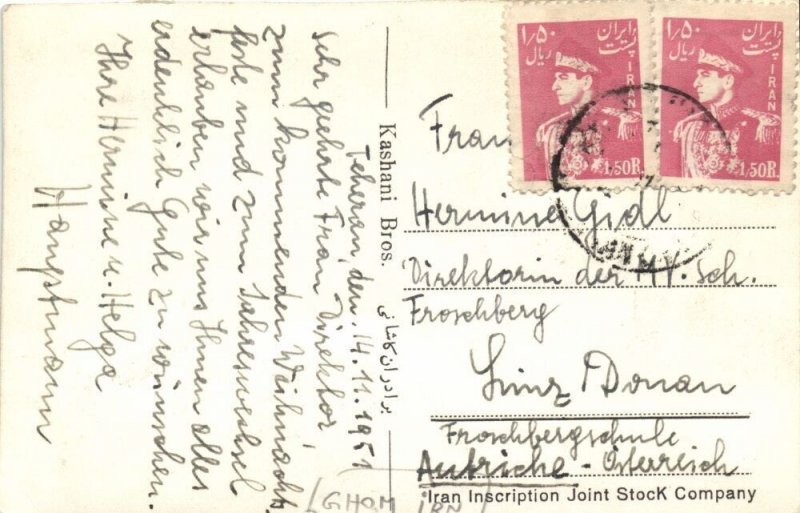 Teheran, den. 14.11.1951
Sehr geehrte Frau Direktor!
Zum kommenden Weihnachts-
feste und zum Jahreswechsel
erlauben wir uns Ihnen alles
erdenklich Gute zu wünschen.
Ihre Hermine u. Helga
Hauptmann
Kashani Bros.
برادران کاشانی
ایران
پست
۱٫۵۰
ریال
IRAN
1,50R.
ایران
پست
۱٫۵۰
ریال
IRAN
1,50R.
Frau
Hermine Gidl
Direktorin der M. Sch.
Froschberg
Linz Donau
Froschbergschule
Autriche - Österreich
(GHOM
Iran Inscription Joint Stock Company